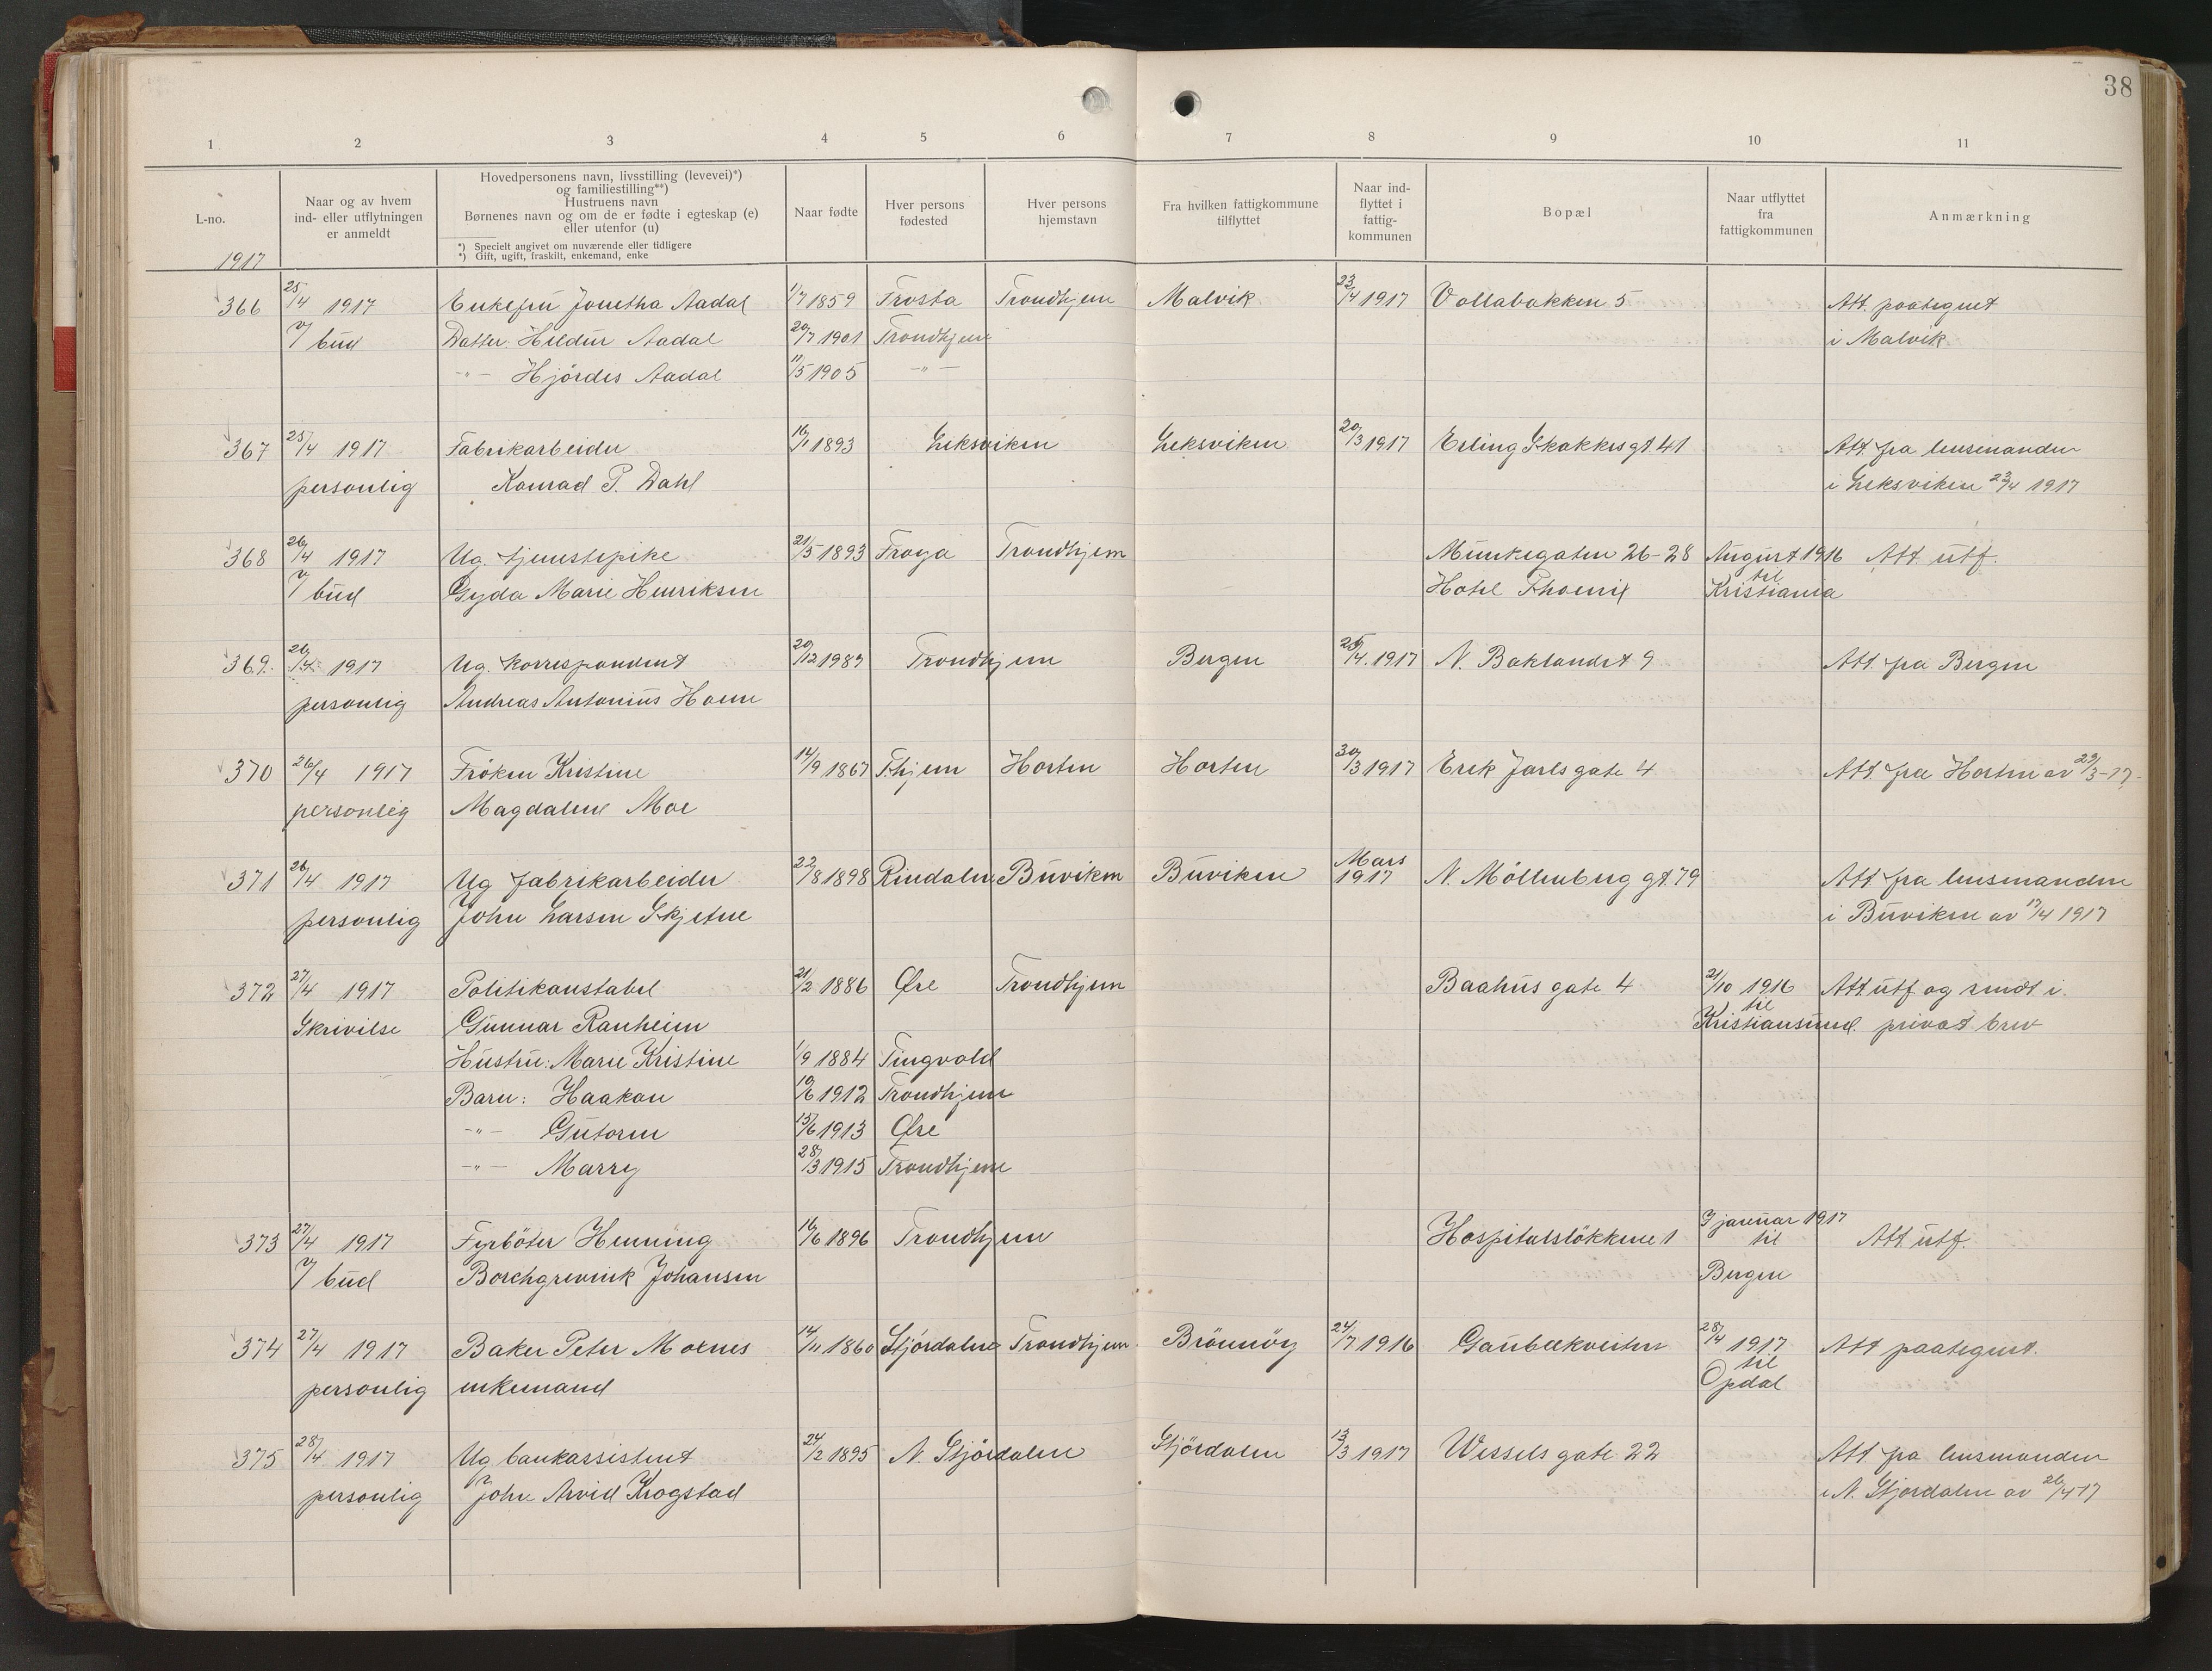 38
1 2 3 4 5 6 7 8 9 10 11
L-no.
1917
Naar og av hvem
ind- eller utflytningen
er anmeldt
Hovedpersonens navn, livsstilling (levevei)*)
og familiestilling**)
Hustruens navn
Børnenes navn og om de er fødte i egteskap (e)
eller utenfor (u)
*) Specielt angivet om nuværende eller tidligere
*) Gift, ugift, fraskilt, enkemand, enke
Naar fødte
Hver persons
fødested
Hver persons
hjemstavn
Fra hvilken fattigkommune
tilflyttet
Naar ind-
flyttet i
fattig-
kommunen
Bopæl
Naar utflyttet
fra
fattigkommunen
Anmærkning
366 25/4 1917 Enkefru Jonetha Aadal 1/7 1859 Frosta Trondhjem Malvik 23/4 1917 Vollabakken 5 Att. paategnet
v/ bud Datter: Hildur Aadal 20/7 1901 Trondhjem i Malvik
-"- Hjördis Aadal 11/5 1905 -"-
367 25/4 1917 Fabrikarbeider 16/1 1893 Leksviken Leksviken 20/3 1917 Erling Skakkes gt. 41 Att. fra lensmanden
personlig Konrad P. Dahl i Leksviken 23/4 1917
368 26/4 1917 Ug. tjenestepike 21/5 1893 Frøya Trondhjem Munkegaten 26-28 August 1916 Att. utf.
v/ bud Gyda Marie Henriksen Hotel Phoenix til Kristiania
369. 26/4 1917 Ug. korrespondent 20/12 1987 Trondhjem Bergen 25/4. 1917 N. Baklandet 9 Att. fra Bergen
personlig Andreas Antonius Hoem
370 26/4 1917 Fröken Kristine 14/9 1867 T.hjem Horten Horten 30/3 1917 Erik Jarls gate 4 Att. fra Horten av 29/3-17.
personlig Magdalene Moe
371 26/4 1917 Ug fabrikarbeider 22/8 1898 Rindalen Buviken Buviken Mars 1917 N. Möllenberg gt. 79 Att. fra lensmanden
personlig John Larsen Skjetne i Buviken av 17/4 1917
372 27/4 1917 Politikonstabel 21/2 1886 Øre Trondhjem Baahus gate 4 21/10 1916 Att. utf og sendt i
Skrivelse Gunnar Ranheim til Kristiansund. privat brev
Hustru: Marie Kristine 1/9 1884 Tingvold
Barn: Haakon 10/6 1912 Trondhjem
-"- Gutorm 15/6 1913 Øre
-"- Marry 28/3 1915 Trondhjem
373 27/4 1917 Fyrböter Henning 16/6 1896 Trondhjem Hospitalslökkene 1 3 januar 1917 til Att. utf.
v/ bud Borchgrevink Johansen Bergen
374 27/4 1917 Baker Peter Moenes 14/11 1860 Stjördalen Trondhjem. Brönnöy 24/7 1916 Gaubækveiten 28/4 1917 Att paategnet.
personlig enkemand til Opdal
375 28/4 1917 Ug bankassistent 24/2 1895 N. Stjördalen Stjördalen 13/3 1917 Wessels gate 22 Att fra lensmanden
personlig John Arvid Krogstad i N. Stjördalen av 26/4 17